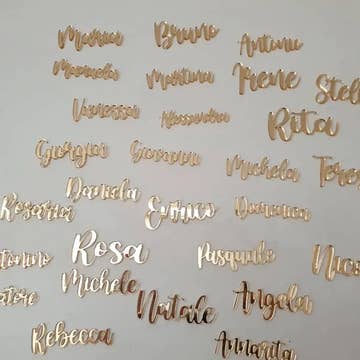 Marina Bruno Antonio
Manuela Martina Irene Stel
Vanessa Alessandra Rita
Giorgia Giovanni Michela Tere
Daniela
Rosaria Enrico Domenica
Rosa Pasquale Nico
tonino Michele Angela
atore Natale
Rebecca Annarita